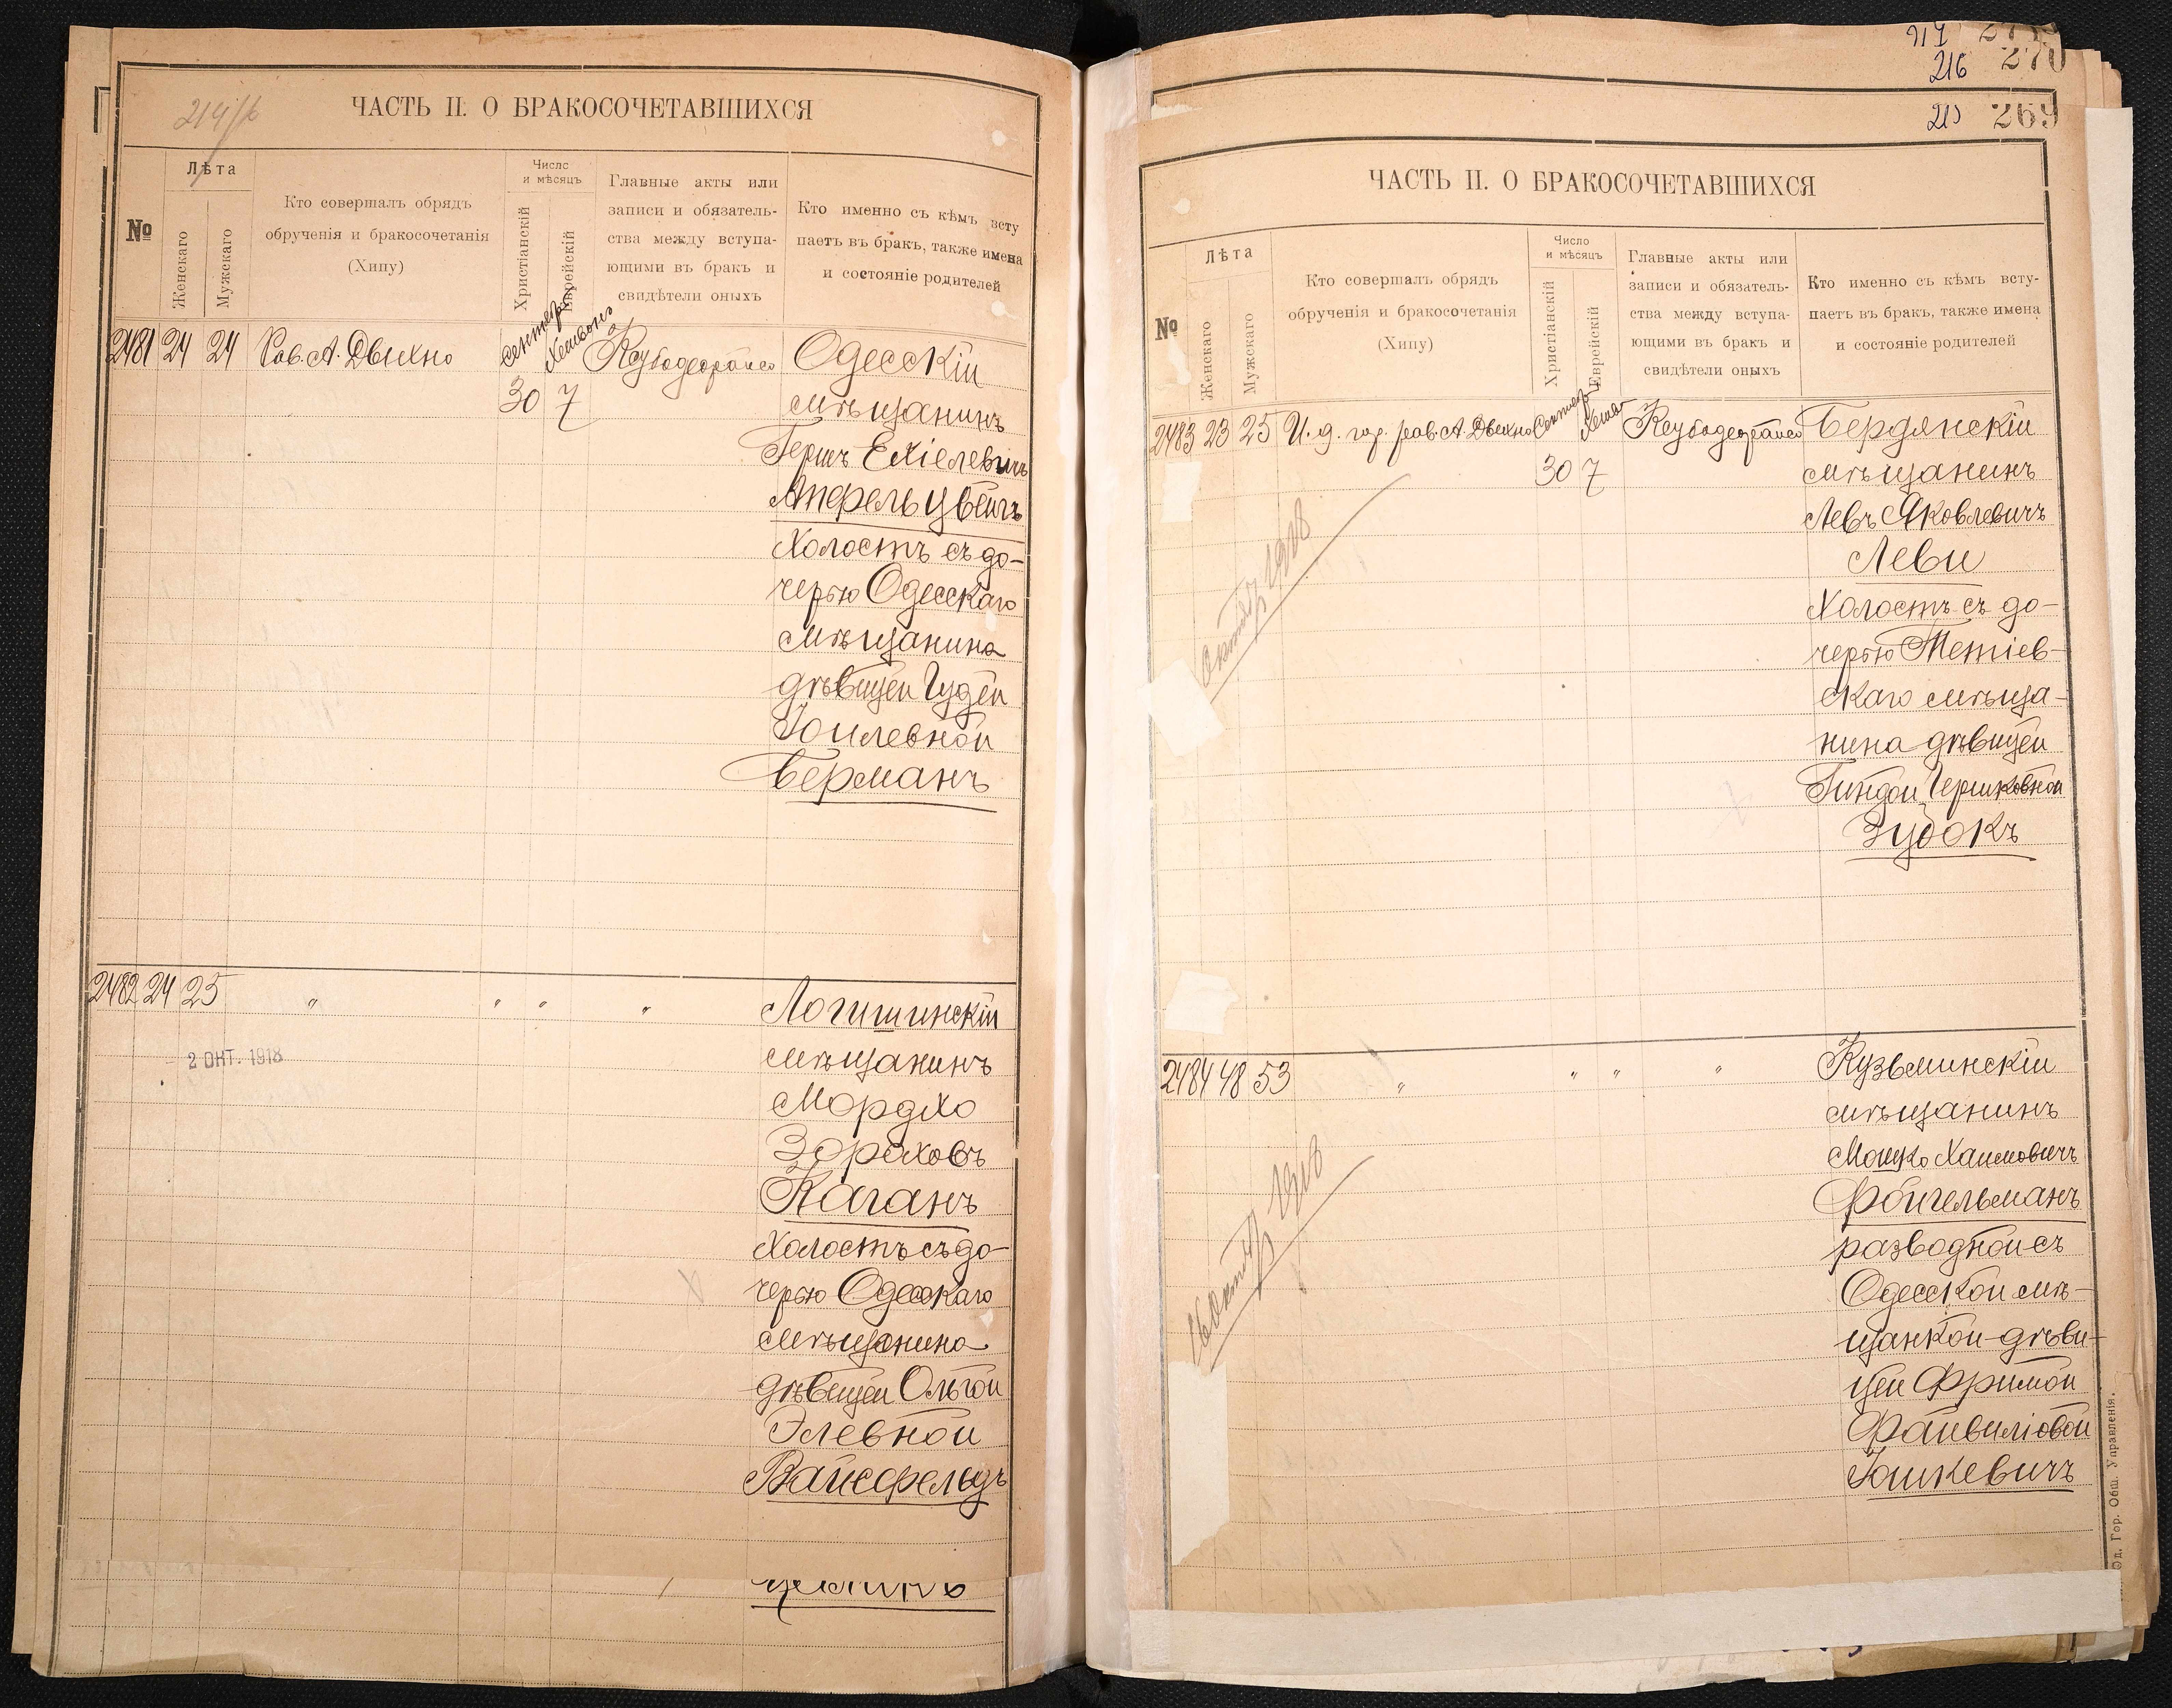 214/б
ЧАСТЬ II. О БРАКОСОЧЕТАВШИХСЯ
№
Лѣта
Женскаго
Мужскаго
Кто совершалъ обрядъ
обрученія и бракосочетанія
(Хипу)
Число
и мѣсяцъ
Христіанскій
Еврейскій
Главные акты или
записи и обязатель-
ства между вступа-
ющими въ бракъ и
свидѣтели оныхъ
Кто именно съ кѣмъ всту
паетъ въ бракъ, также имена
и состояніе родителей
2481 24 24 Рав. А. Двихно
30 7
Одесскій
мѣщанинъ
Гершъ Ехіелевичъ
Апфельцвейгъ
Холостъ съ до-
черью Одесскаго
мѣщанина
дѣвицей Гудей
Іоилевной
Берманъ
2482 24 25 " " " "
2 ОКТ. 1918
Логишинскій
мѣщанинъ
Мордхо
Зораховъ
Каганъ
Холостъ съ до-
черью Одесскаго
мѣщанина
дѣвицей Ольгой
Элевной
Вайсфельдъ
217
216 270
215 269
ЧАСТЬ II. О БРАКОСОЧЕТАВШИХСЯ
№
Лѣта
Женскаго
Мужскаго
Кто совершалъ обрядъ
обрученія и бракосочетанія
(Хипу)
Число
и мѣсяцъ
Христіанскій
Еврейскій
Главные акты или
записи и обязатель-
ства между вступа-
ющими въ бракъ и
свидѣтели оныхъ
Кто именно съ кѣмъ всту-
паетъ въ бракъ, также имена
и состояніе родителей
2483 23 25 И. д. гор. рав. А. Двихно
30 7
Бердянскій
мѣщанинъ
Левъ Яковлевичъ
Леви
Холостъ съ до-
черью Тетіев-
скаго мѣща-
нина дѣвицей
Гиндой Гершковной
Зубокъ
октябр 1918
2484 48 53 " " " "
Кузьминскій
мѣщанинъ
Мошко Хаимовичъ
Фойгельманъ
разводной съ
Одесской мѣ-
щанкой дѣви-
цей Фримой
Файвиліовой
Іошкевичъ
16 октябр 1918
Од. Гор. Общ. Управленія.